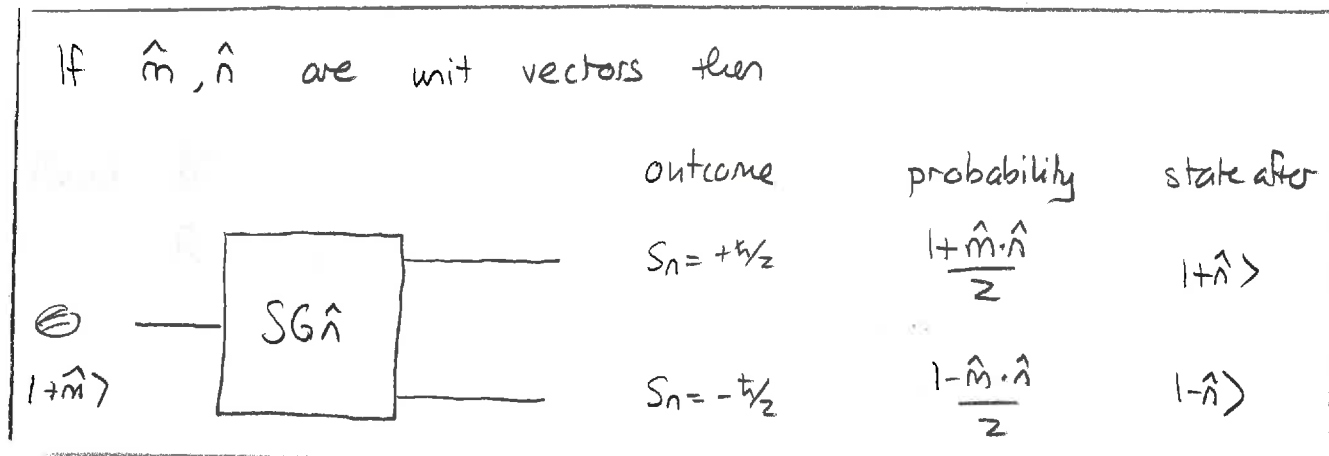 If m̂, n̂ are unit vectors then
outcome probability state after
Sn = +ħ/2 (1+m̂·n̂)/2 |+n̂>
SG n̂
|+m̂>
Sn = -ħ/2 (1-m̂·n̂)/2 |-n̂>